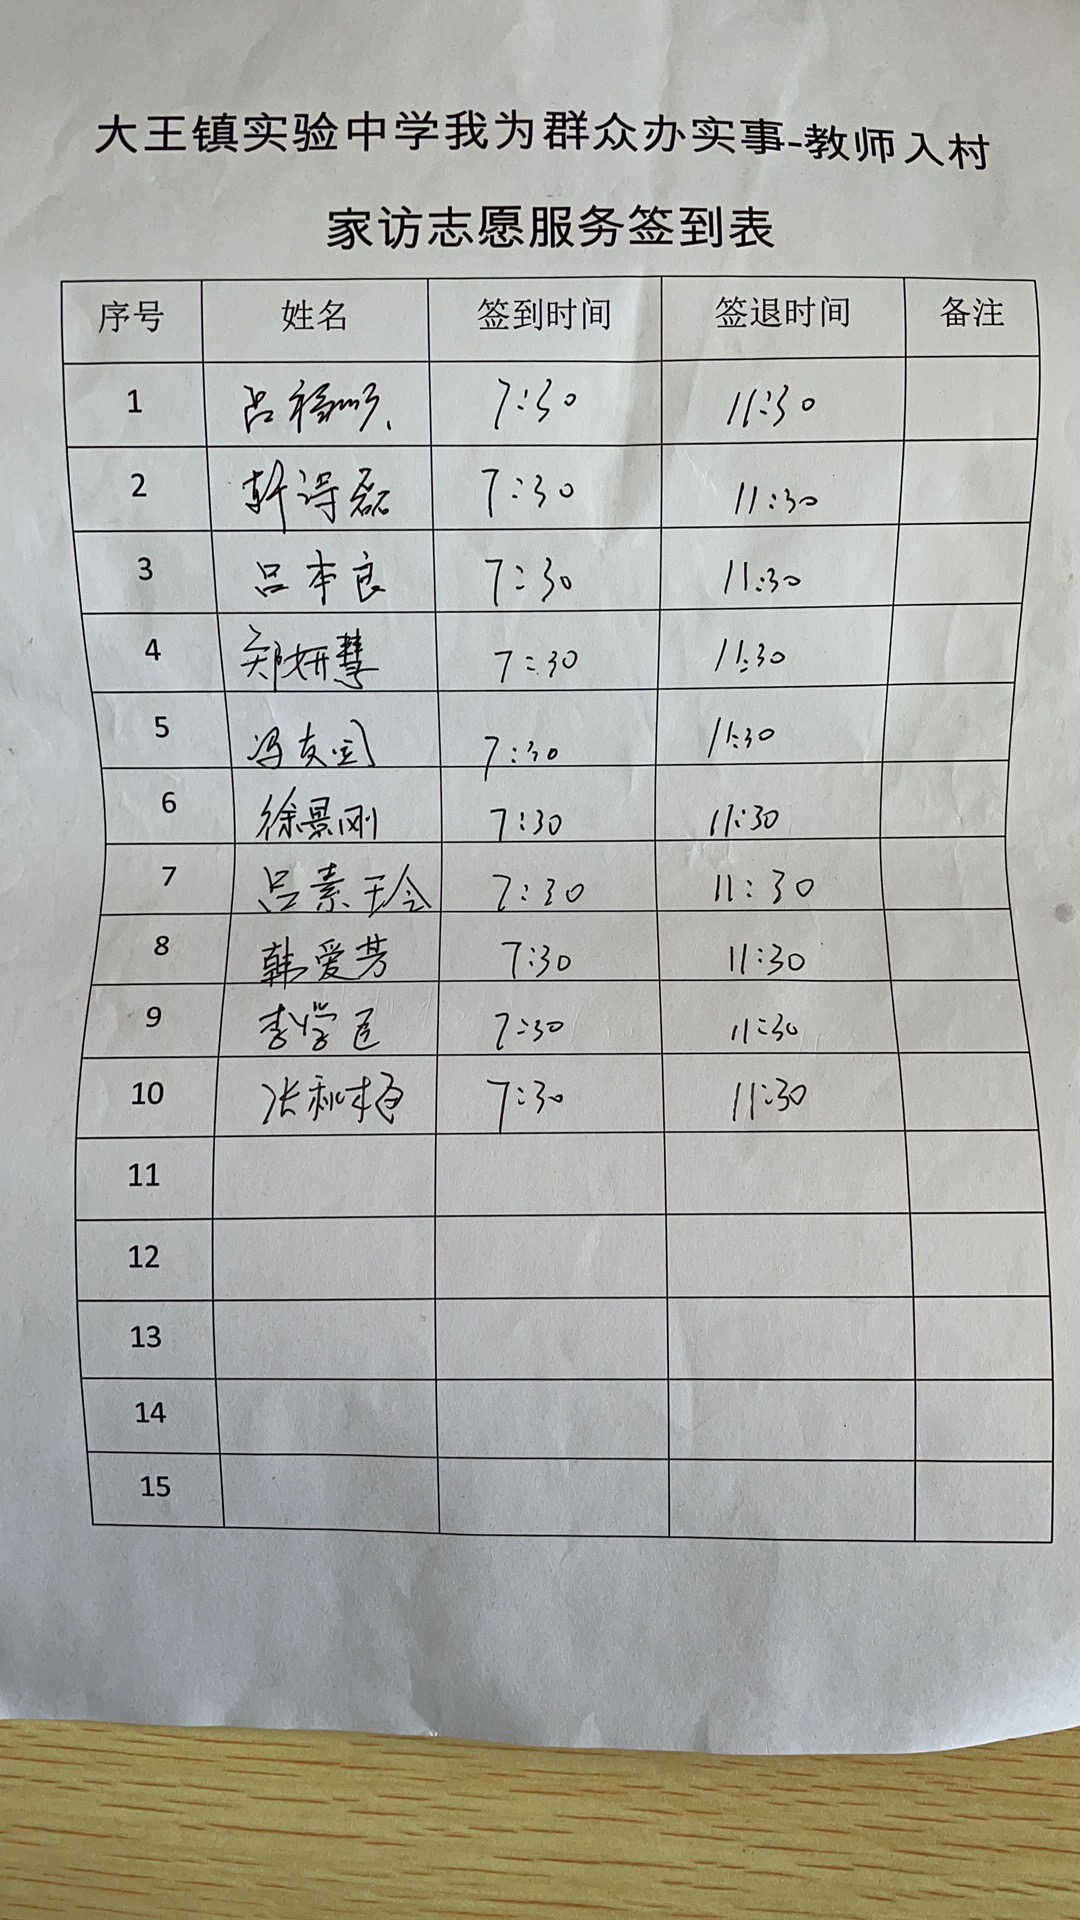 大王镇实验中学我为群众办实事-教师入村
家访志愿服务签到表
序号 姓名 签到时间 签退时间 备注
1 吕福 7:30 11:30
2 磊 7:30 11:30
3 吕本良 7:30 11:30
4 郑妍慧 7:30 11:30
5 冯友 7:30 11:30
6 徐景刚 7:30 11:30
7 吕素玲 7:30 11:30
8 韩爱芳 7:30 11:30
9 李学 7:30 11:30
10 张秋梅 7:30 11:30
11
12
13
14
15